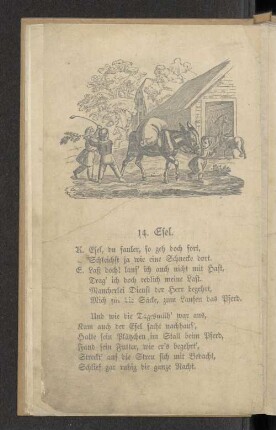 14. Esel.
K. Esel, du fauler, so geh doch fort,
Schleichst ja wie eine Schnecke dort.
E. Laß doch! lauf' ich auch nicht mit Hast,
Trag' ich doch redlich meine Last.
Mancherlei Dienst der Herr begehrt,
Mich zu die Säcke, zum Laufen das Pferd.
Und wie die Tagesmüh' war aus,
Kam auch der Esel sacht nachhaus',
Hatte sein Plätzchen im Stall beim Pferd,
Fand sein Futter, wie er's begehrt,
Streckt' auf die Streu sich mit Bedacht,
Schlief gar ruhig die ganze Nacht.